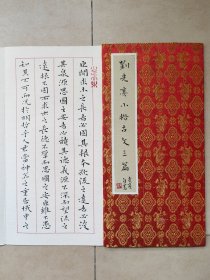 小楷古文三篇
臣聞求木之長者必固其根本欲流之遠者必浚
其泉源思國之安者必積其德義源不深而望流之
遠根不固而求木之長德不厚而思國之安臣雖下愚
知其不可而況於明哲乎人君當神器之重居域中之